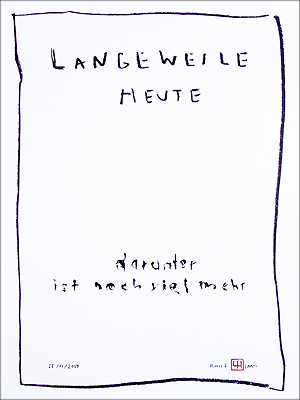 LANGEWEILE
HEUTE
darunter
ist noch viel mehr